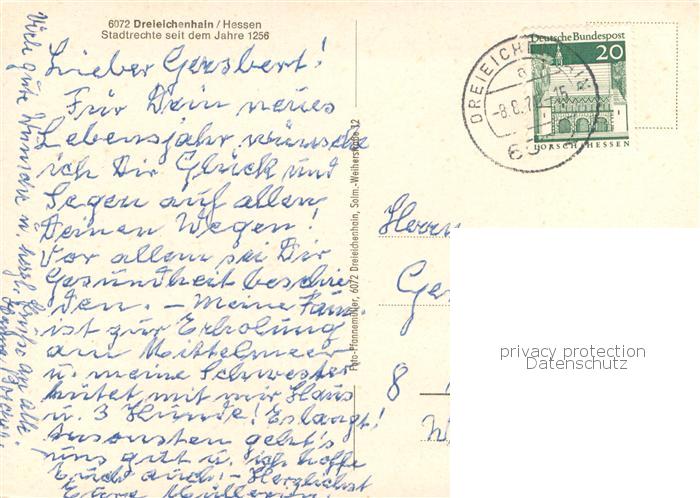 6072 Dreieichenhain / Hessen
Stadtrechte seit dem Jahre 1256
Lieber Gersbert!
Für Dein neues
Lebensjahr wünsche
ich Dir Glück und
Segen auf allen
Deinen Wegen!
Vor allem sei Dir
Gesundheit beschie
den. – Meine Fam.
ist zur Erholung
am Mittelmeer
u. meine Schwester
hütet mit mir Haus
u. 3 Hunde! Es langt!
Ansonsten geht's
uns gut u. ich hoffe
Euch auch! – Herzlichst
Eure
Viele gute Wünsche u. herzl. Grüße an alle
Foto-Pfannemüller, 6072 Dreieichenhain, Solm.-Weiherstraße 12
DREIEICHENHAIN
-8.6.7
15
Deutsche Bundespost
20
LORSCH/HESSEN
Herrn
Ge
8
W
privacy protection
Datenschutz